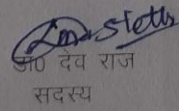 डा0 देव राज
सदस्य